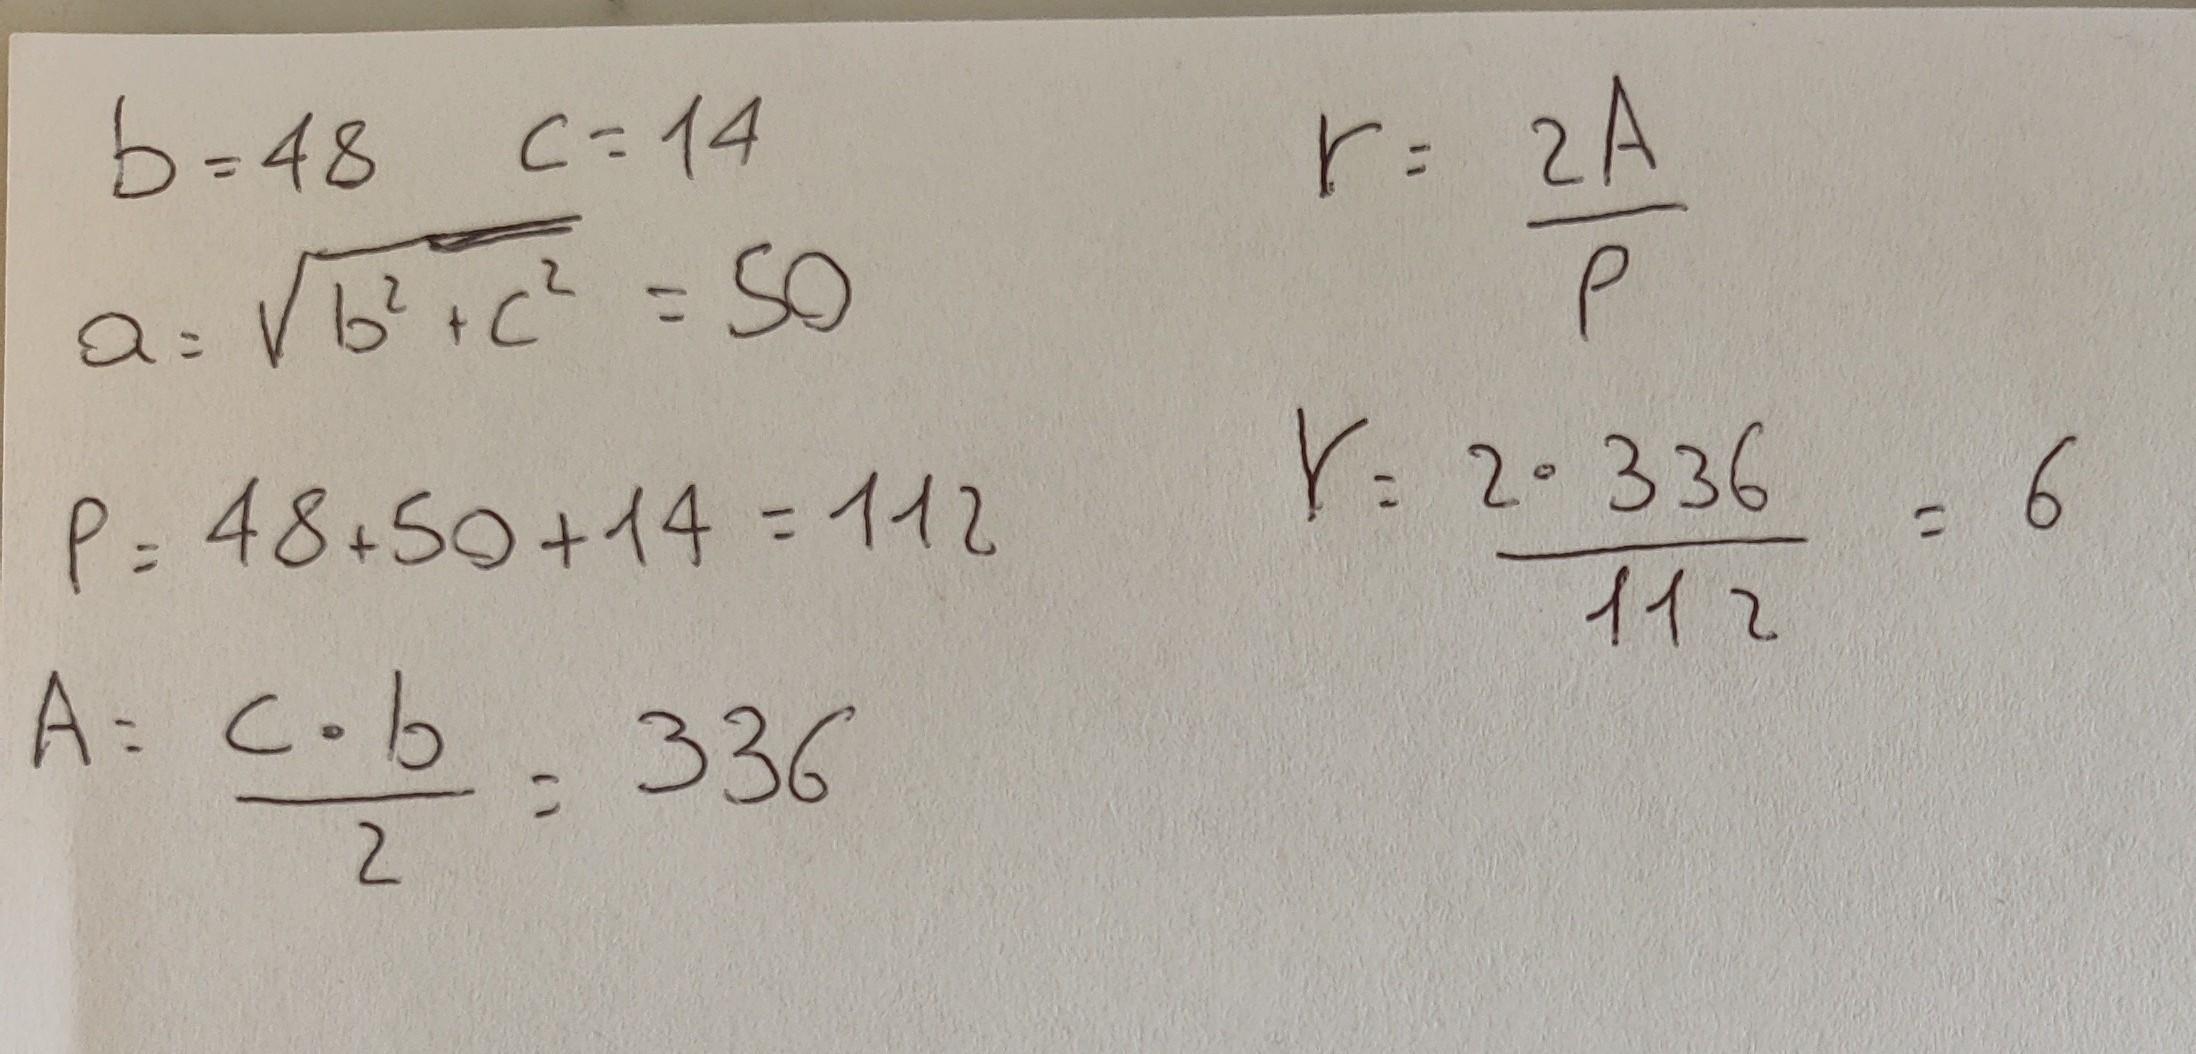 b = 48 c = 14
a = √(b² + c²) = 50
P = 48 + 50 + 14 = 112
A = (c · b) / 2 = 336
r = 2A / P
r = (2 · 336) / 112 = 6